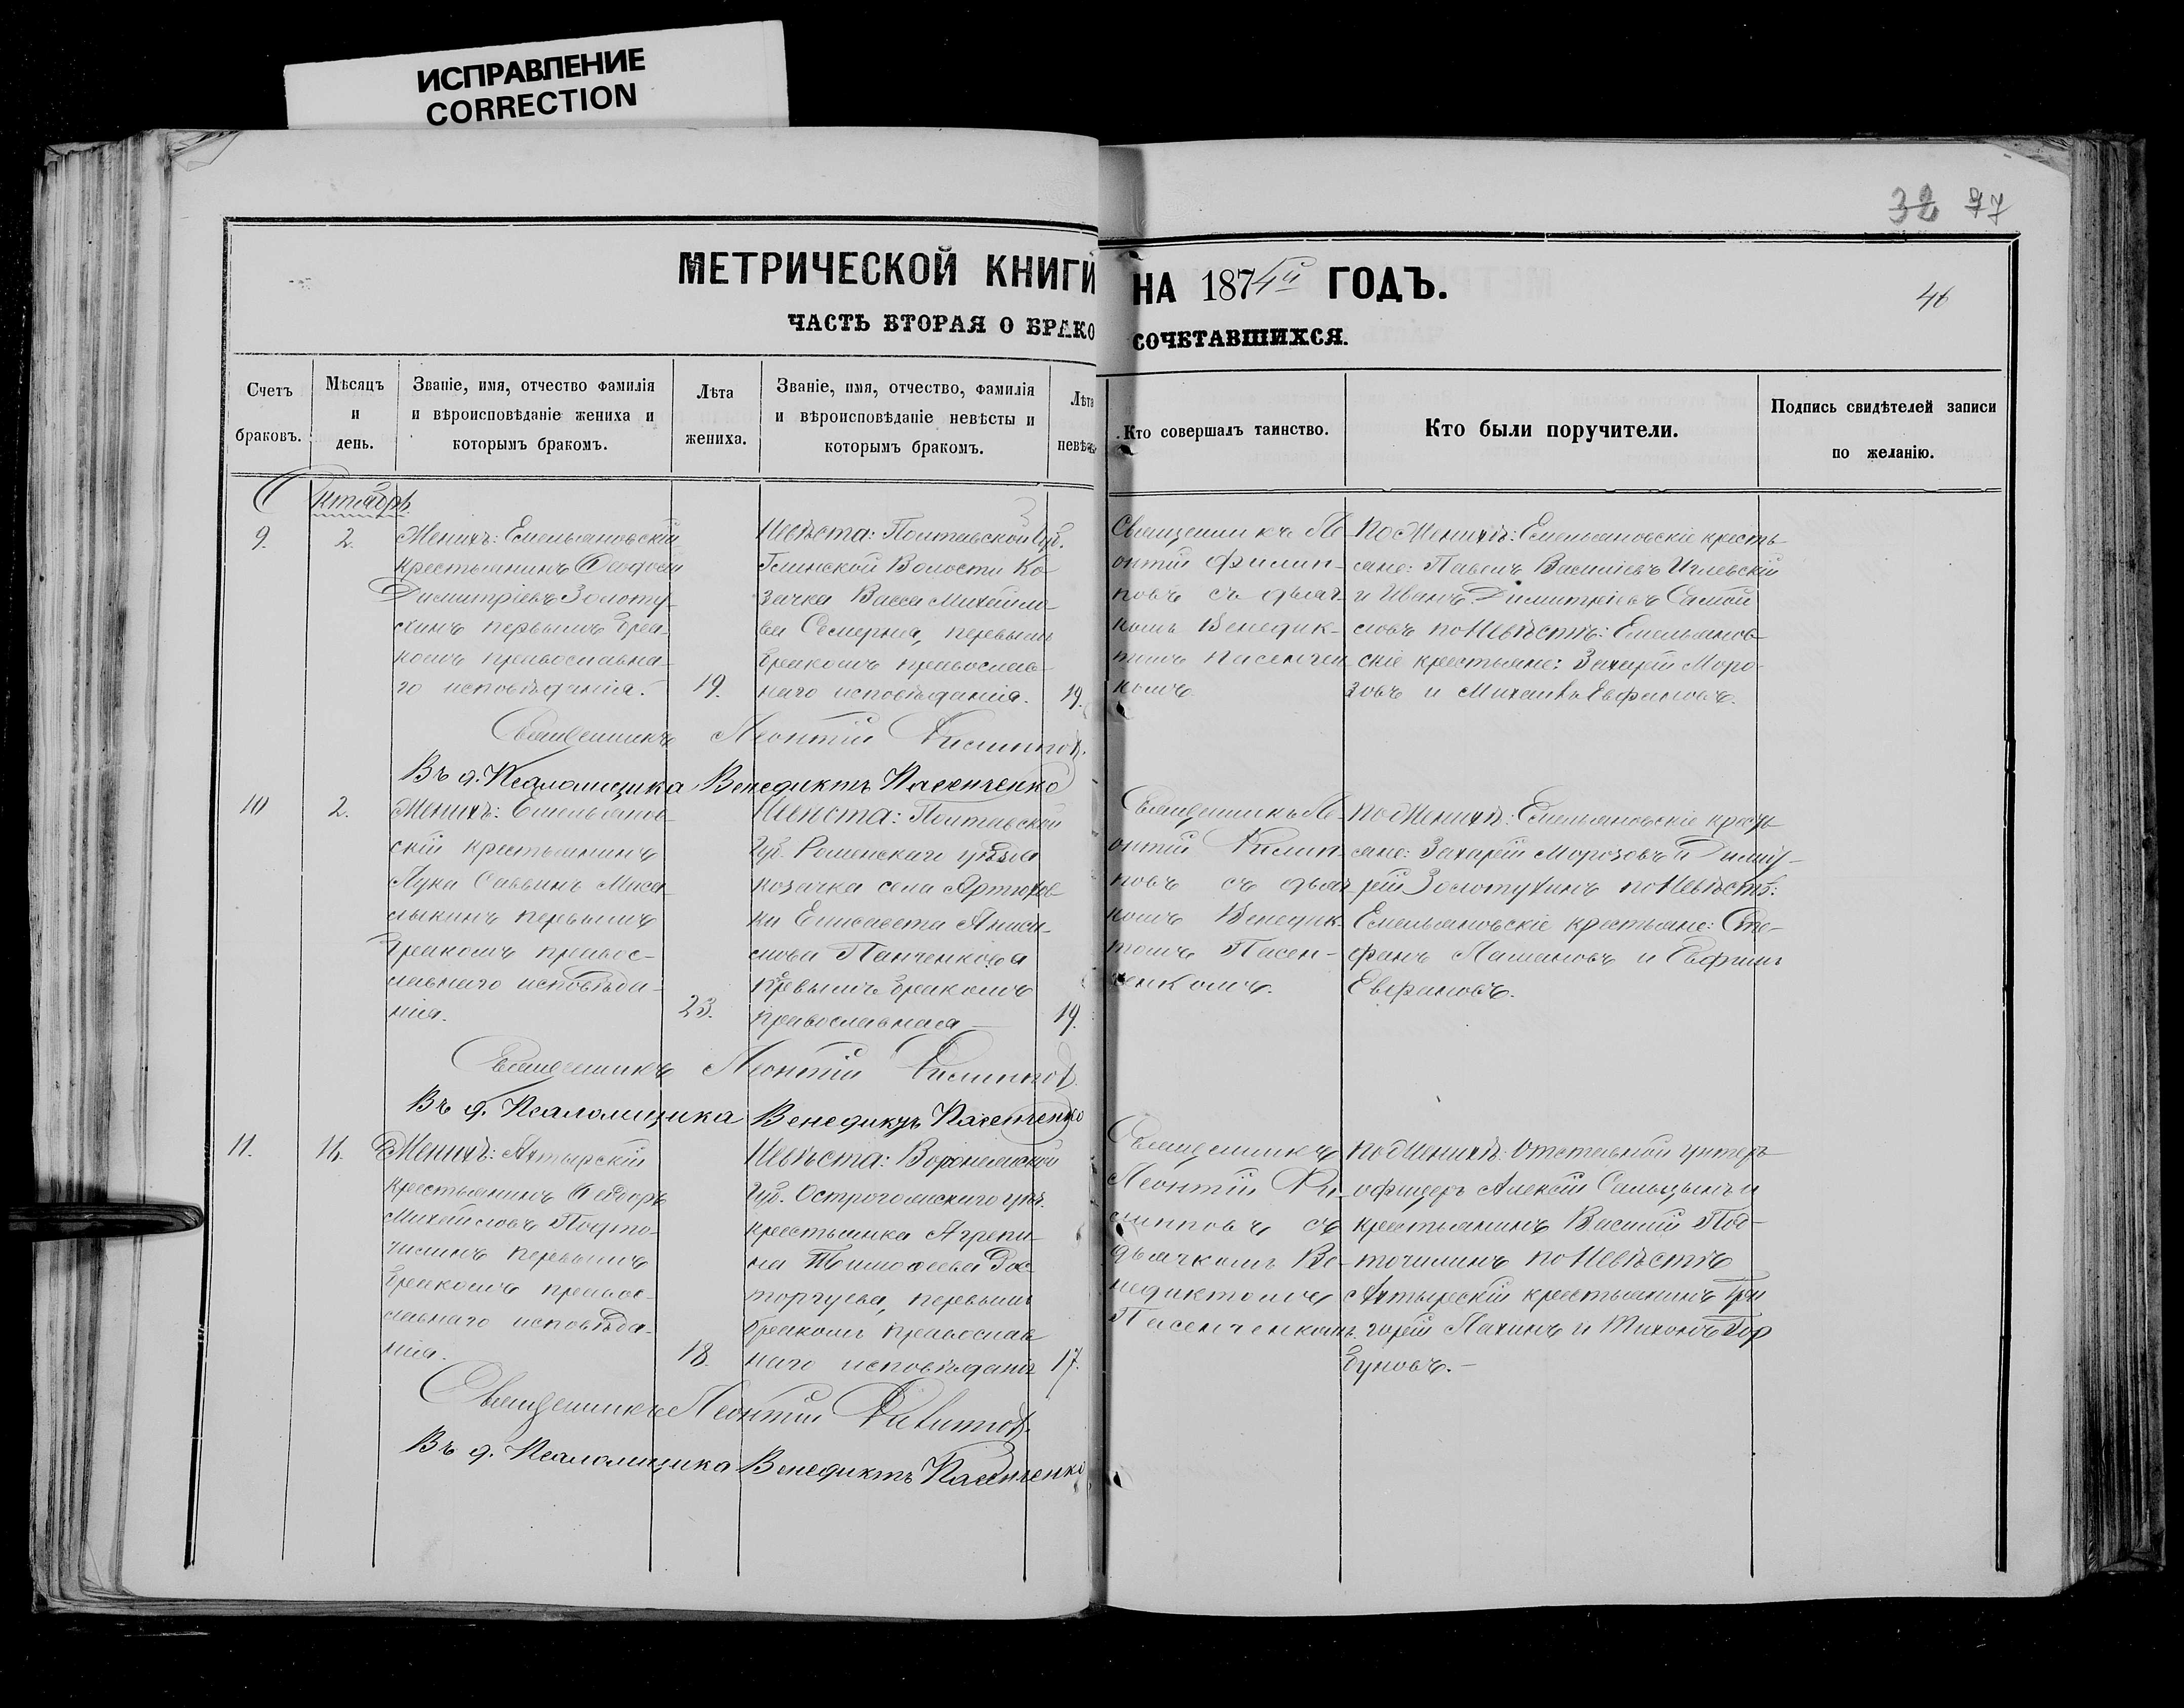 ИСПРАВЛЕНИЕ
CORRECTION
32 77
МЕТРИЧЕСКОЙ КНИГИ НА 1874й ГОДЪ.
46
ЧАСТЬ ВТОРАЯ О БРАКОСОЧЕТАВШИХСЯ.
Счетъ браковъ.
Мѣсяцъ и день.
Званіе, имя, отчество фамилія и вѣроисповѣданіе жениха и которымъ бракомъ.
Лѣта жениха.
Званіе, имя, отчество, фамилія и вѣроисповѣданіе невѣсты и которымъ бракомъ.
Лѣта невѣс
Кто совершалъ таинство.
Кто были поручители.
Подпись свидѣтелей записи по желанію.
Октябрь
9.
2.
Женихъ: Емельяновскій
крестьянинъ Феодосій
Димитріевъ Золоту-
хинъ первымъ бра-
комъ православна-
го исповѣданія.
19.
Невѣста: Полтавской Губ.
Глинской Волости Ко-
зачка Васса Михайло-
ва первымъ
бракомъ православ-
наго исповѣданія.
19.
Священникъ Ле-
онтій Филип-
повъ съ дьяч-
комъ Бенедик-
томъ Пасенчен
комъ.
По Женихѣ: Емельяновскіе кресть-
яне: Павелъ Василіевъ
и Иванъ Димитріевъ Самой
ловъ по Невѣстѣ: Емельянов-
скіе крестьяне: Захарій Моро-
зовъ и Михаилъ Евфановъ.
Священникъ Леонтій Филиппов.
Въ д. Псаломщика Венедиктъ Пасенченко
10
2.
Женихъ: Емельянов-
скій крестьянинъ
Лука Саввинъ Маса-
лыкинъ первымъ
бракомъ правос-
лавнаго исповѣда-
нія.
23.
Невѣста: Полтавской
Губ. Роменскаго уѣзда
козачка села Артюхов-
ки Елисавета Аниси-
мова Панченкова
первымъ бракомъ
православнаго
19.
Священникъ Ле-
онтій Филип-
повъ съ дьяч
комъ Венедик-
томъ Пасен-
ченкомъ.
По Женихѣ: Емельяновскіе кресть-
яне: Захарій Морозовъ и Димит-
рій Золотухинъ по Невѣстѣ:
Емельяновскіе крестьяне: Сте-
фанъ и Евфимъ
Евфановъ.
Священникъ Леонтій Филиппов.
Въ д. Псаломщика Венедиктъ Пасенченко
11.
16.
Женихъ: Ахтырскій
крестьянинъ Феодоръ
Михайловъ Подто-
чилинъ первымъ
бракомъ правос-
лавнаго исповѣда-
нія.
18.
Невѣста: Воронежской
Губ. Острогожскаго уѣз.
крестьянка Агрепи-
на Тимофеева Рас-
торгуева, первымъ
бракомъ православ
наго исповѣданія
17.
Священникъ
Леонтій Фи-
липповъ съ
дьячкомъ Ве-
недиктомъ
Пасенченкомъ.
По Женихѣ: Отставной унтеръ
офицеръ Алексій и
крестьянинъ Василій Под-
точилинъ по Невѣстѣ
Ахтырскій крестьянинъ Гри
горій Пахинъ и Тихонъ Гор
буновъ.
Священникъ Леонтій Филиппов.
Въ д. Псаломщика Венедиктъ Пасенченко